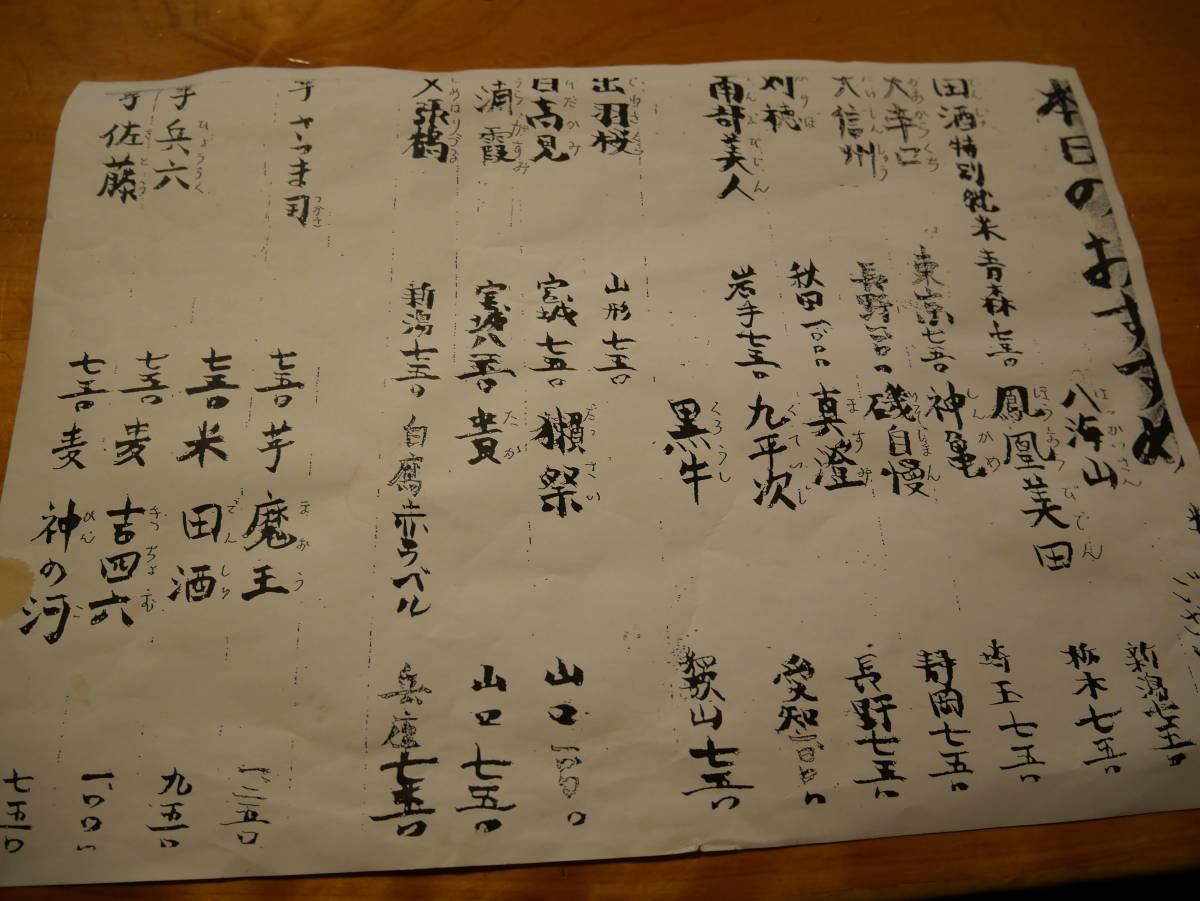 本日のおすすめ
田酒特別純米 青森 七五〇
大辛口 東京 七五〇
大信州 長野
刈穂 秋田 一、〇〇〇
南部美人 岩手 七五〇
出羽桜 山形 七五〇
日高見 宮城 七五〇
浦霞 宮城 八五〇
〆張鶴 新潟 七五〇
八海山 新潟 七五〇
鳳凰美田 栃木 七五〇
神亀 埼玉 七五〇
磯自慢 静岡 七五〇
真澄 長野 七五〇
九平次 愛知
黒牛 和歌山 七五〇
獺祭 山口
貴 山口 七五〇
白鷹赤ラベル 兵庫 七五〇
芋 さつま司 七五〇
七五〇
芋 兵六 七五〇
芋 佐藤 七五〇
芋 魔王 一、二五〇
米 田酒 九五〇
麦 吉四六 一、〇〇〇
麦 神の河 七五〇